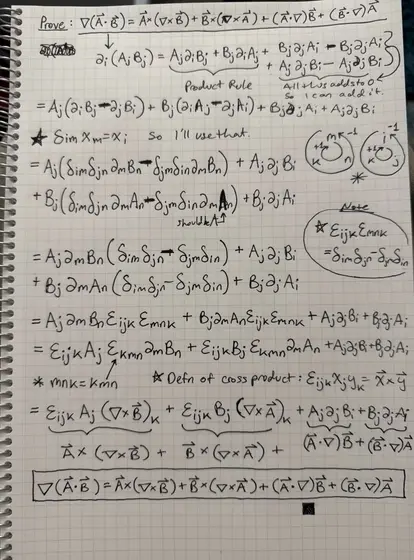 Prove: ∇(A⃗·B⃗) = A⃗×(∇×B⃗) + B⃗×(∇×A⃗) + (A⃗·∇)B⃗ + (B⃗·∇)A⃗
∂i(AjBj) = Aj∂iBj + Bj∂iAj + Bj∂jAi - Bj∂jAi
+ Aj∂jBi - Aj∂jBi
Product Rule
All this adds to 0
So I can add it.
= Aj(∂iBj - ∂jBi) + Bj(∂iAj - ∂jAi) + Bj∂jAi + Aj∂jBi
★ δim xm = xi So I'll use that.
= Aj(δimδjn∂mBn - δjmδin∂mBn) + Aj∂jBi
+ Bj(δimδjn∂mAn - δjmδin∂mAn) + Bj∂jAi
should A
m -1 +1 k n
i -1 +1 k j
*
Note
☆ εijk εmnk
= δimδjn - δjmδin
= Aj∂mBn(δimδjn - δjmδin) + Aj∂jBi
+ Bj∂mAn(δimδjn - δjmδin) + Bj∂jAi
= Aj∂mBn εijk εmnk + Bj∂mAn εijk εmnk + Aj∂jBi + Bj∂jAi
= εijkAj εkmn∂mBn + εijkBj εkmn∂mAn + Aj∂jBi + Bj∂jAi
* mnk = kmn ☆ Defn of cross product: εijk xj yk = x⃗×y⃗
= εijk Aj (∇×B⃗)k + εijk Bj (∇×A⃗)k + Aj∂jBi + Bj∂jAi
A⃗×(∇×B⃗) + B⃗×(∇×A⃗) + (A⃗·∇)B⃗ + (B⃗·∇)A⃗
∇(A⃗·B⃗) = A⃗×(∇×B⃗) + B⃗×(∇×A⃗) + (A⃗·∇)B⃗ + (B⃗·∇)A⃗